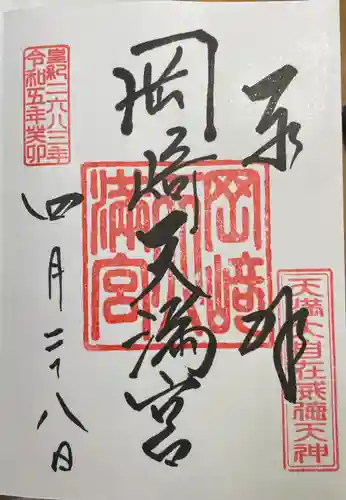 奉拝
天満大自在威徳天神
岡崎天満宮
岡崎天満宮
皇紀二六八三年
令和五年癸卯
四月二十八日